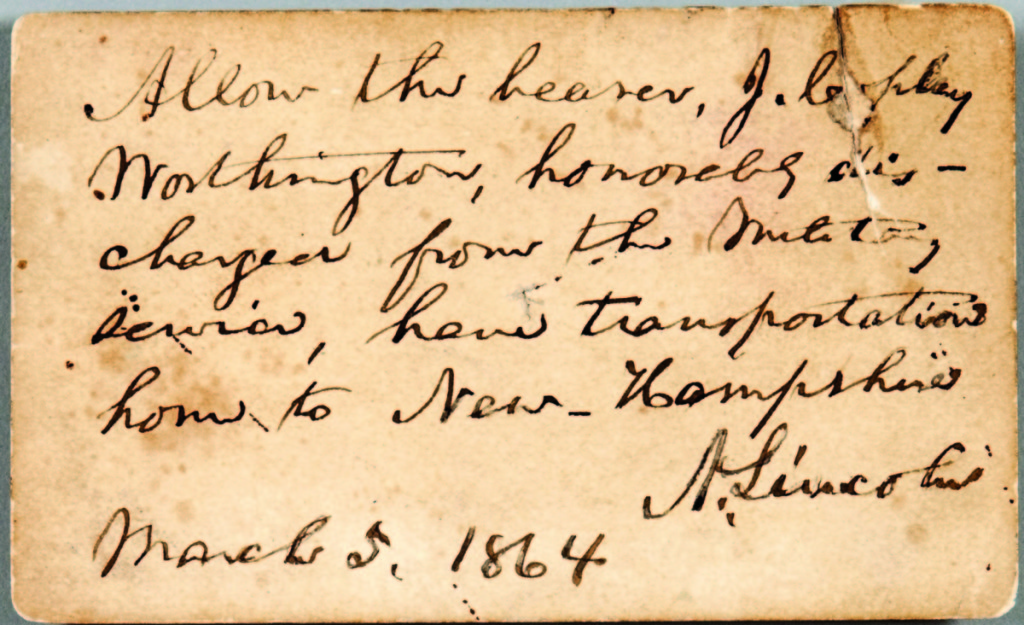 Allow the bearer, J. Copley
Worthington, honorably dis-
charged from the Military
service, have transportation
home to New-Hampshire
A. Lincoln
March 5. 1864